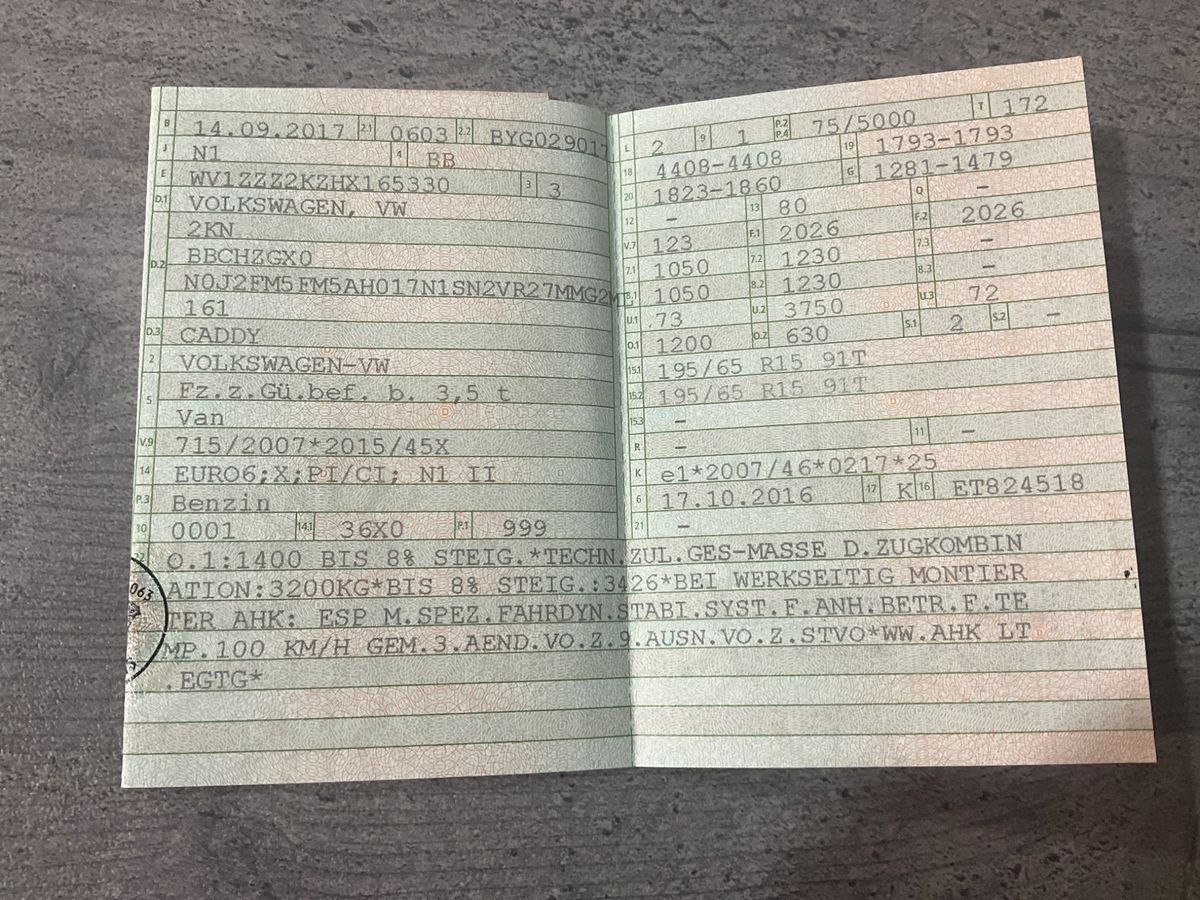 B 14.09.2017 2.1 0603 2.2 BYG029017
J N1 4 BB
E WV1ZZZ2KZHX165330 3 3
D.1 VOLKSWAGEN, VW
2KN
D.2 BBCHZGX0
N0J2FM5FM5AH017N1SN2VR27MMG2M
161
D.3 CADDY
2 VOLKSWAGEN-VW
5 Fz.z.Gü.bef. b. 3,5 t
Van
V.9 715/2007*2015/45X
14 EURO6;X;PI/CI; N1 II
P.3 Benzin
10 0001 14.1 36X0 P.1 999
L 2 9 1 P.2 P.4 75/5000 T 172
18 4408-4408 19 1793-1793
20 1823-1860 G 1281-1479
12 – 13 80 Q –
V.7 123 F.1 2026 F.2 2026
7.1 1050 7.2 1230 7.3 –
8.1 1050 8.2 1230 8.3 –
U.1 73 U.2 3750 U.3 72
O.1 1200 O.2 630 S.1 2 S.2 –
15.1 195/65 R15 91T
15.2 195/65 R15 91T
15.3 –
R – 11 –
K e1*2007/46*0217*25
6 17.10.2016 17 K 16 ET824518
21 –
O.1:1400 BIS 8% STEIG.*TECHN.ZUL.GES-MASSE D.ZUGKOMBIN
ATION:3200KG*BIS 8% STEIG.:3426*BEI WERKSEITIG MONTIER
TER AHK: ESP M.SPEZ.FAHRDYN.STABI.SYST.F.ANH.BETR.F.TE
MP.100 KM/H GEM.3.AEND.VO.Z.9.AUSN.VO.Z.STVO*WW.AHK LT
.EGTG*
063